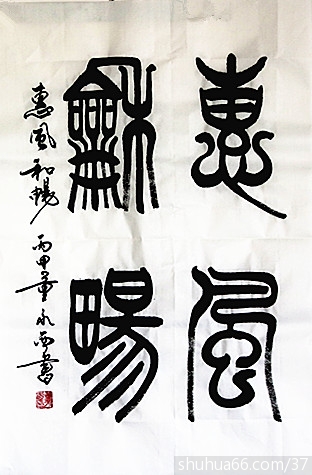 惠風
龢暢
惠風和暢 丙申董永西書
shuhua66.com/37